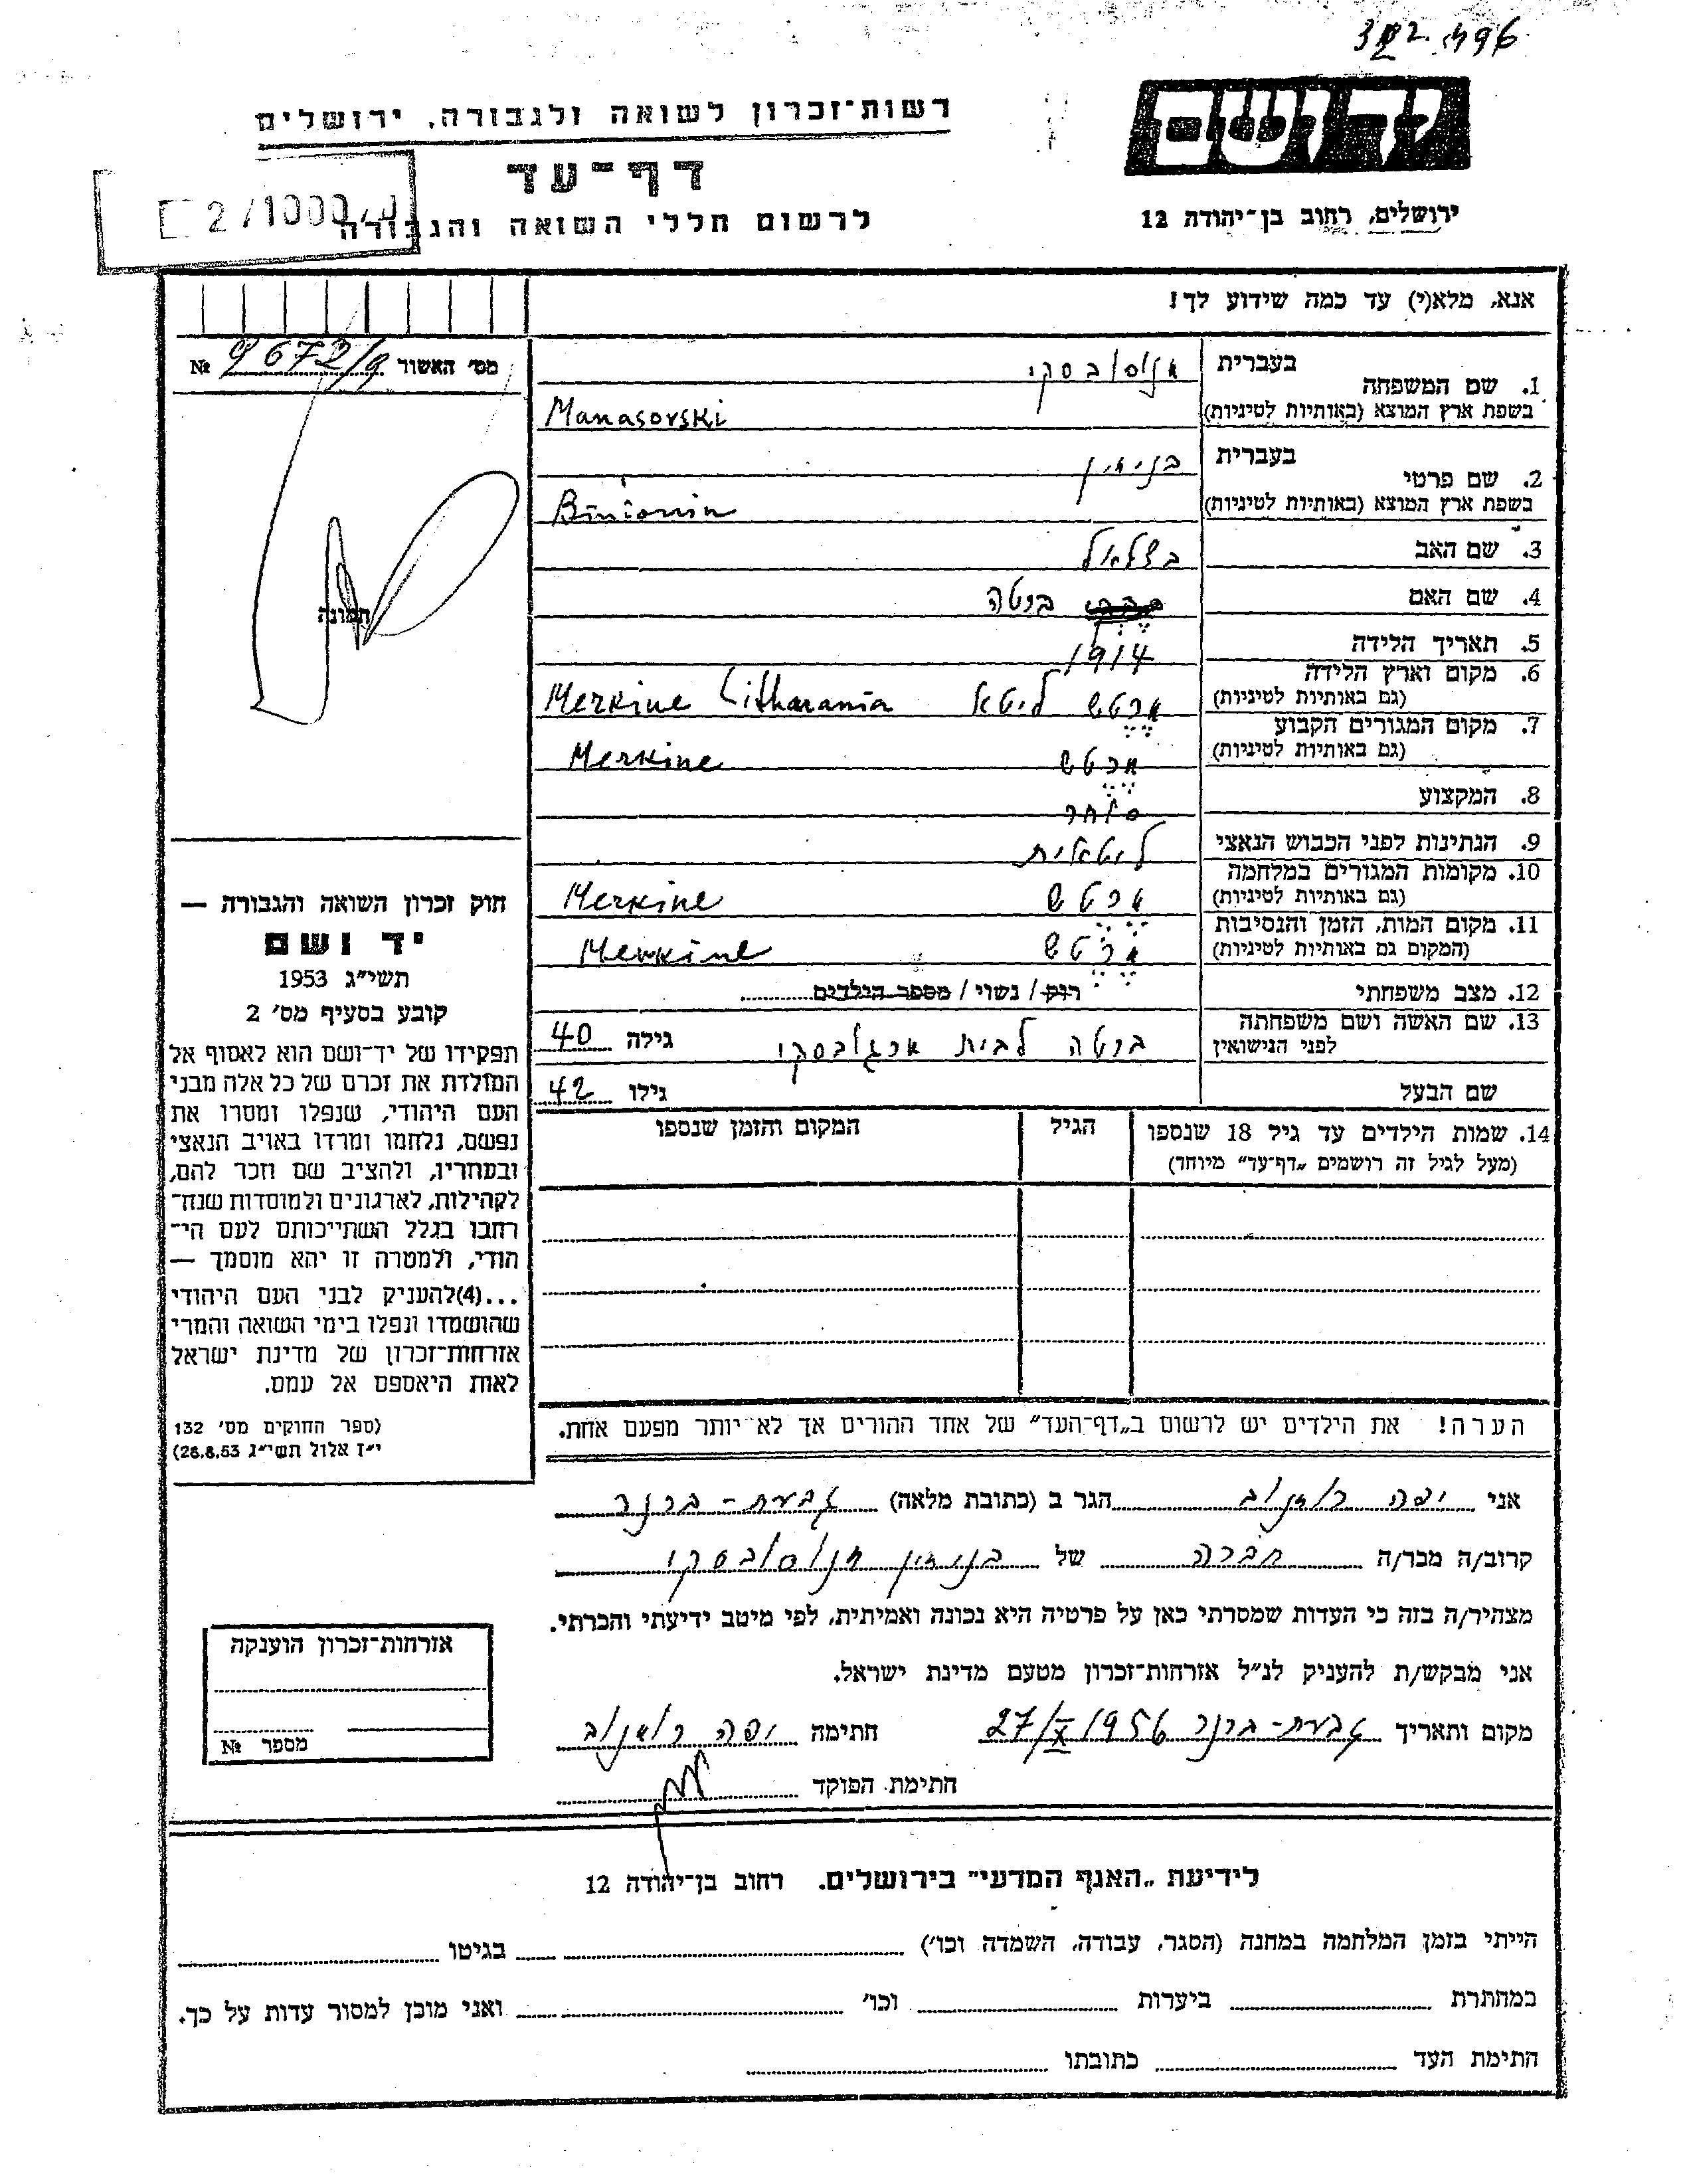 496
יד ושם
ירושלים, רחוב בן־יהודה 12
רשות־זכרון לשואה ולגבורה, ירושלים
דף־עד
לרשום חללי השואה והגבורה
אנא, מלא(י) עד כמה שידוע לך!
מס׳ האשור 9672/9 №
תמונה
1. שם המשפחה בעברית מנוסובסקי
בשפת ארץ המוצא (באותיות לטיניות) Manasovski
2. שם פרטי בעברית בנימין
בשפת ארץ המוצא (באותיות לטיניות)
3. שם האב בצלאל
4. שם האם ברטה
5. תאריך הלידה 1914
6. מקום וארץ הלידה מרטש ליטא Merkine Litharania
(גם באותיות לטיניות)
7. מקום המגורים הקבוע מרטש Merkine
(גם באותיות לטיניות)
8. המקצוע סוחר
9. הנתינות לפני הכבוש הנאצי ליטאית
10. מקומות המגורים במלחמה מרטש Merkine
(גם באותיות לטיניות)
11. מקום המות, הזמן והנסיבות מרטש Merkine
(המקום גם באותיות לטיניות)
12. מצב משפחתי רווק / נשוי / מספר הילדים
13. שם האשה ושם משפחתה ברטה לבית גילה 40
לפני הנישואין
שם הבעל גילו 42
14. שמות הילדים עד גיל 18 שנספו הגיל המקום והזמן שנספו
(מעל לגיל זה רושמים „דף־עד” מיוחד)
הערה! את הילדים יש לרשום ב„דף־העד” של אחד ההורים אך לא יותר מפעם אחת.
חוק זכרון השואה והגבורה —
יד ושם
תשי״ג 1953
קובע בסעיף מס׳ 2
תפקידו של יד־ושם הוא לאסוף אל
המולדת את זכרם של כל אלה מבני
העם היהודי, שנפלו ומסרו את
נפשם, נלחמו ומרדו באויב הנאצי
ובעוזריו, ולהציב שם וזכר להם,
לקהילות, לארגונים ולמוסדות שנח־
רבו בגלל השתייכותם לעם הי־
הודי, ולמטרה זו יהא מוסמך —
...(4) להעניק לבני העם היהודי
שהושמדו ונפלו בימי השואה והמרי
אזרחות־זכרון של מדינת ישראל
לאות היאספם אל עמם.
(ספר החוקים מס׳ 132
י״ז אלול תשי״ג 26.8.53)
אני יפה הגר ב (כתובת מלאה) גבעת-ברנר
קרוב/ה מכר/ה חברה של בנימין מנוסובסקי
מצהיר/ה בזה כי העדות שמסרתי כאן על פרטיה היא נכונה ואמיתית, לפי מיטב ידיעתי והכרתי.
אני מבקש/ת להעניק לנ״ל אזרחות־זכרון מטעם מדינת ישראל.
מקום ותאריך גבעת-ברנר 27/X 1956 חתימה יפה
חתימת הפוקד
אזרחות־זכרון הוענקה
מספר №
לידיעת „האגף המדעי” בירושלים. רחוב בן־יהודה 12
הייתי בזמן המלחמה במחנה (הסגר, עבודה, השמדה וכו׳) בגיטו
במחתרת ביערות וכו׳ ואני מוכן למסור עדות על כך.
התימת העד כתובתו